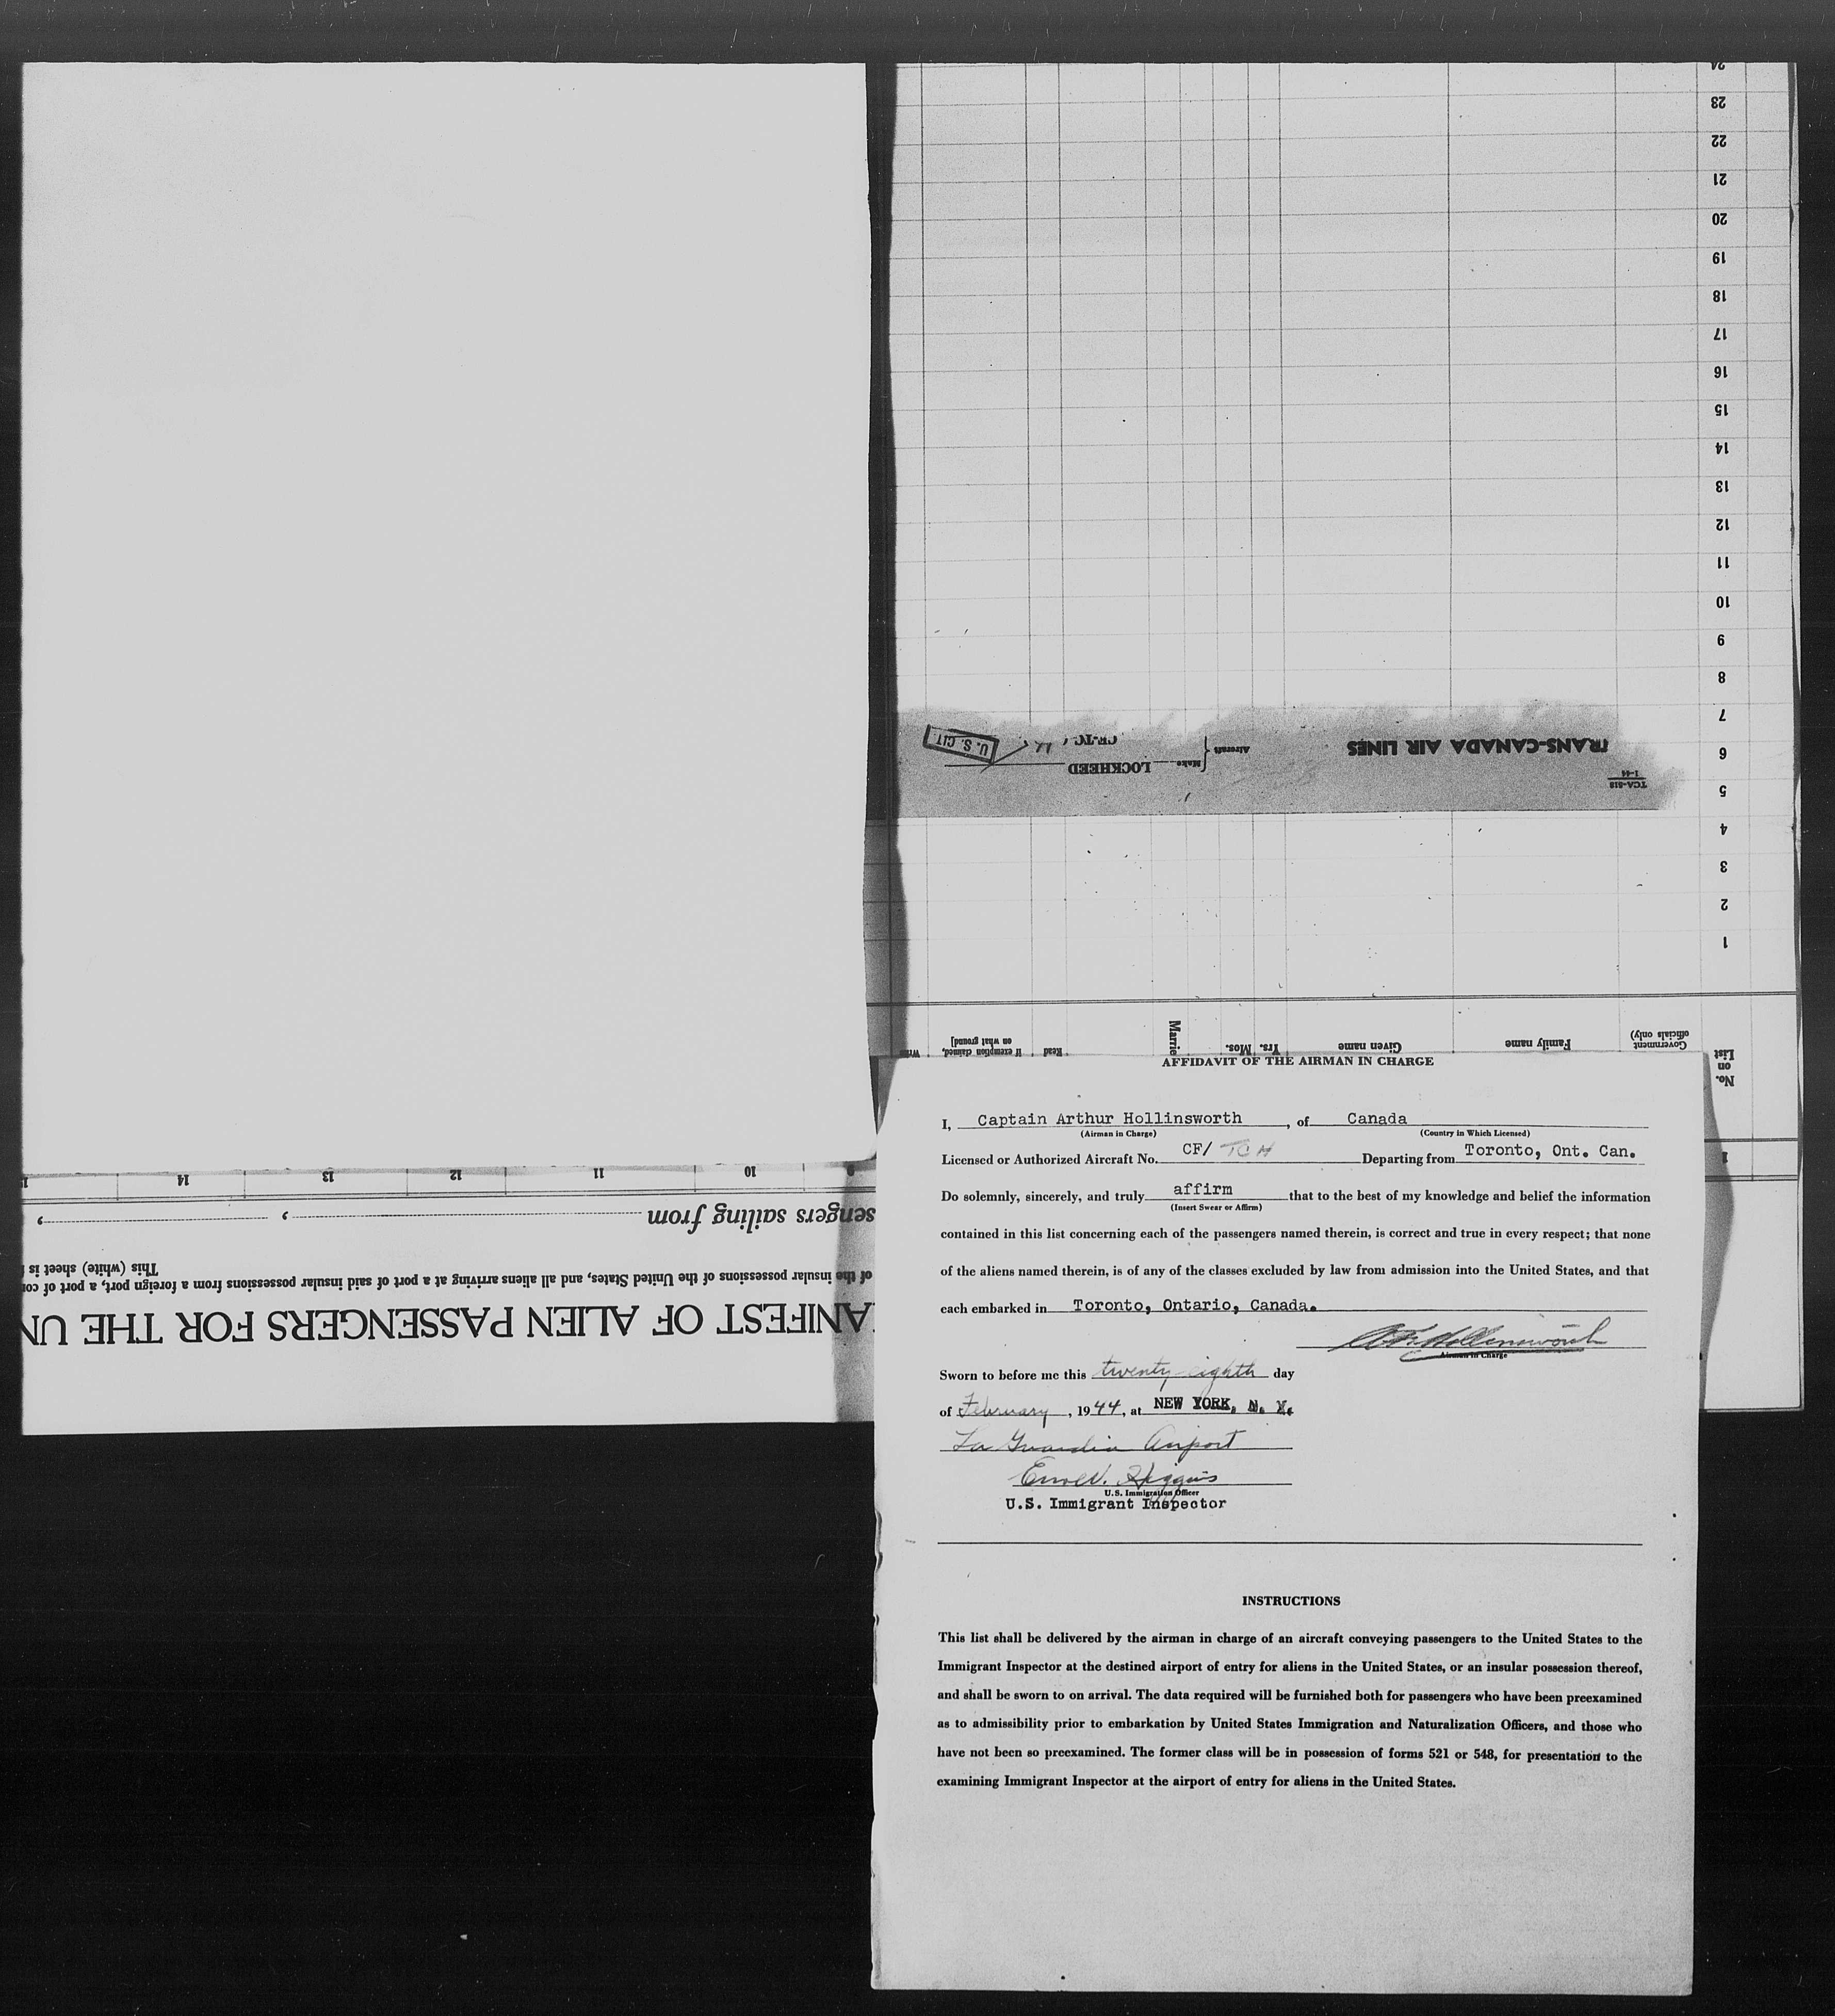 24
23
22
21
20
19
18
17
16
15
14
13
12
11
10
9
8
7
6
5
4
3
2
1
TCA-518
1-44
TRANS-CANADA AIR LINES
Aircraft
Make LOCKHEED
CF-TC
U. S. CIT
No. on List
Government officials only)
Family name
Given name
Yrs. Mos.
Marrie
Read
if exemption claimed, on what ground]
ANIFEST OF ALIEN PASSENGERS FOR THE UN
of the insular possessions of the United States, and all aliens arriving at a port of said insular possessions from a foreign port, a port of
This (white) sheet is
sengers sailing from , ,
9 10 11 12 13 14
AFFIDAVIT OF THE AIRMAN IN CHARGE
I, Captain Arthur Hollinsworth , of Canada
(Airman in Charge) (Country in Which Licensed)
Licensed or Authorized Aircraft No. CF/ TCH Departing from Toronto, Ont. Can.
Do solemnly, sincerely, and truly affirm that to the best of my knowledge and belief the information
(Insert Swear or Affirm)
contained in this list concerning each of the passengers named therein, is correct and true in every respect; that none
of the aliens named therein, is of any of the classes excluded by law from admission into the United States, and that
each embarked in Toronto, Ontario, Canada.
Hollinsworth
Airman in Charge
Sworn to before me this twenty eighth day
of February , 1944, at NEW YORK, N. Y.
La Guardia Airport
Higgins
U.S. Immigration Officer
U.S. Immigrant Inspector
INSTRUCTIONS
This list shall be delivered by the airman in charge of an aircraft conveying passengers to the United States to the
Immigrant Inspector at the destined airport of entry for aliens in the United States, or an insular possession thereof,
and shall be sworn to on arrival. The data required will be furnished both for passengers who have been preexamined
as to admissibility prior to embarkation by United States Immigration and Naturalization Officers, and those who
have not been so preexamined. The former class will be in possession of forms 521 or 548, for presentation to the
examining Immigrant Inspector at the airport of entry for aliens in the United States.